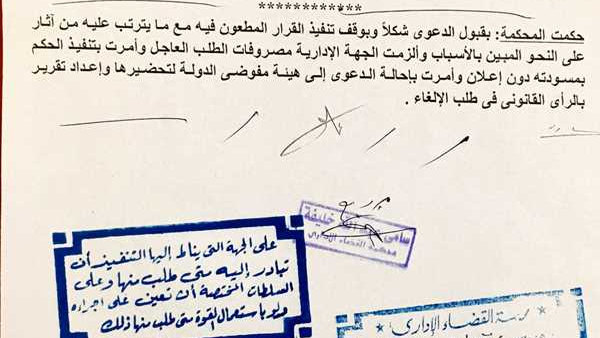 حكمت المحكمة: بقبول الدعوى شكلاً وبوقف تنفيذ القرار المطعون فيه مع ما يترتب عليه من آثار
على النحو المبين بالأسباب وألزمت الجهة الإدارية مصروفات الطلب العاجل وأمرت بتنفيذ الحكم
بمسودته دون إعلان وأمرت بإحالة الدعوى إلى هيئة مفوضى الدولة لتحضيرها وإعداد تقرير
بالرأى القانونى فى طلب الإلغاء .
سامى خليفة
محكمة القضاء الإدارى
على الجهة التى يناط إليها التنفيذ أن
تبادر إليه متى طلب منها وعلى
السلطات المختصة أن تعين على اجراءه
ولو باستعمال القوة متى طلب منها ذلك
القضاء الإدارى